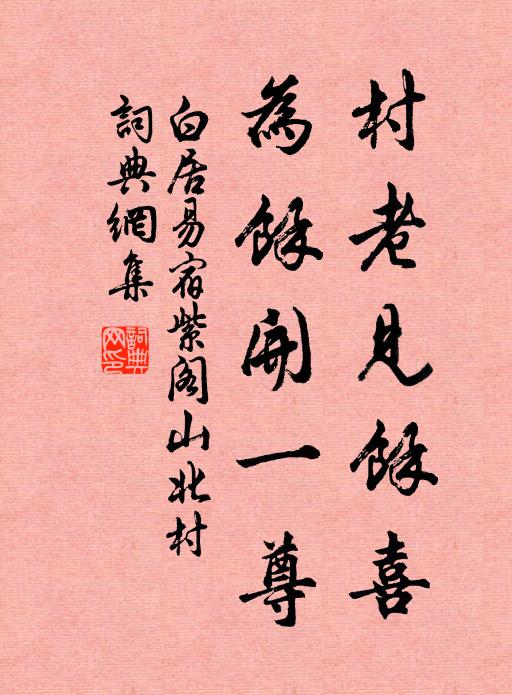 村老見餘喜
為餘開一尊
白居易宿紫閣山北村
詞典網集
詞典網印